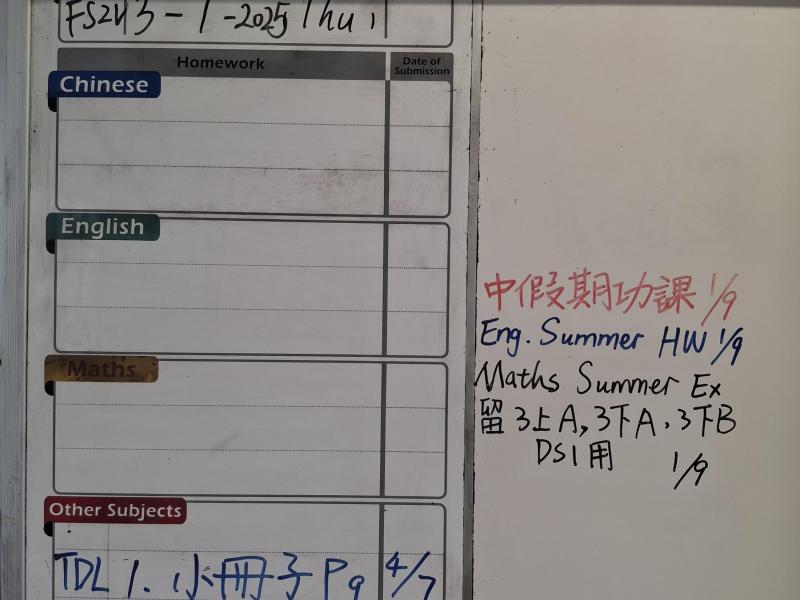 3 - 1 - 2025 Thu
Homework
Date of Submission
Chinese
English
Maths
Other Subjects
TDL 1. 小冊子 P9 4/7
中假期功課 1/9
Eng. Summer HW 1/9
Maths Summer Ex
留 3上A, 3下A, 3下B
DS1用 1/9